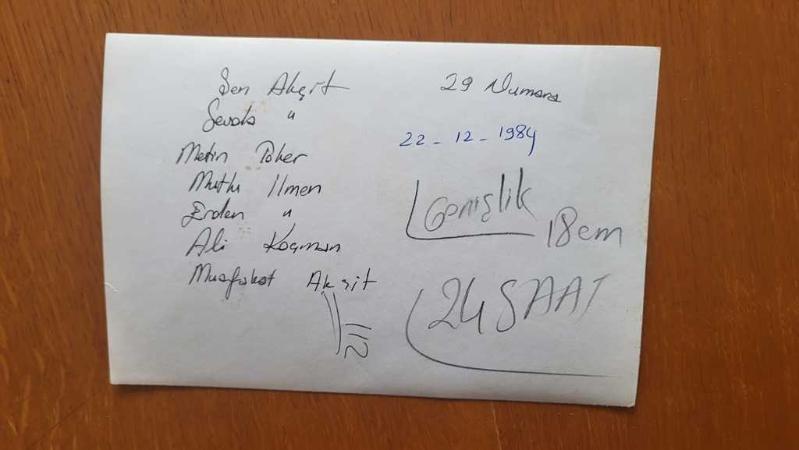 Şen Akçit
Sevda "
Metin Toker
Mutlu Ilmen
Erden "
Ali Koçman
Muafakat Akçit
29 Numara
22-12-1984
Genişlik
18 cm
24 SAAT